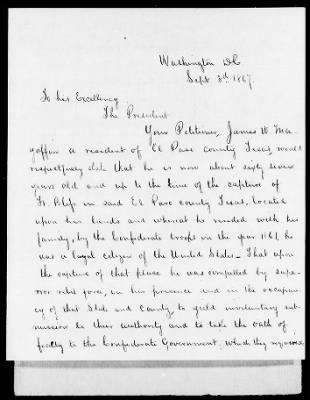 Washington DC
Sept 3d 1867.
To his Excellency
The President
Your Petitioner, James W. Ma-
goffin a resident of El Paso County Texas, would
respectfully state that he is now about sixty seven
years old and up to the time of the capture of
Ft. Bliss in said El Paso county Texas, located
upon his lands and whereat he resided with his
family, by the Confederate troops in the year 1861, he
was a loyal citizen of the United States_ That upon
the capture of that place he was compelled by supe-
rior rebel force, in his presence and in the occupan-
cy of that State and County, to yield involuntary sub-
mission to their authority and to take the oath of
fealty to the Confederate Government, which they